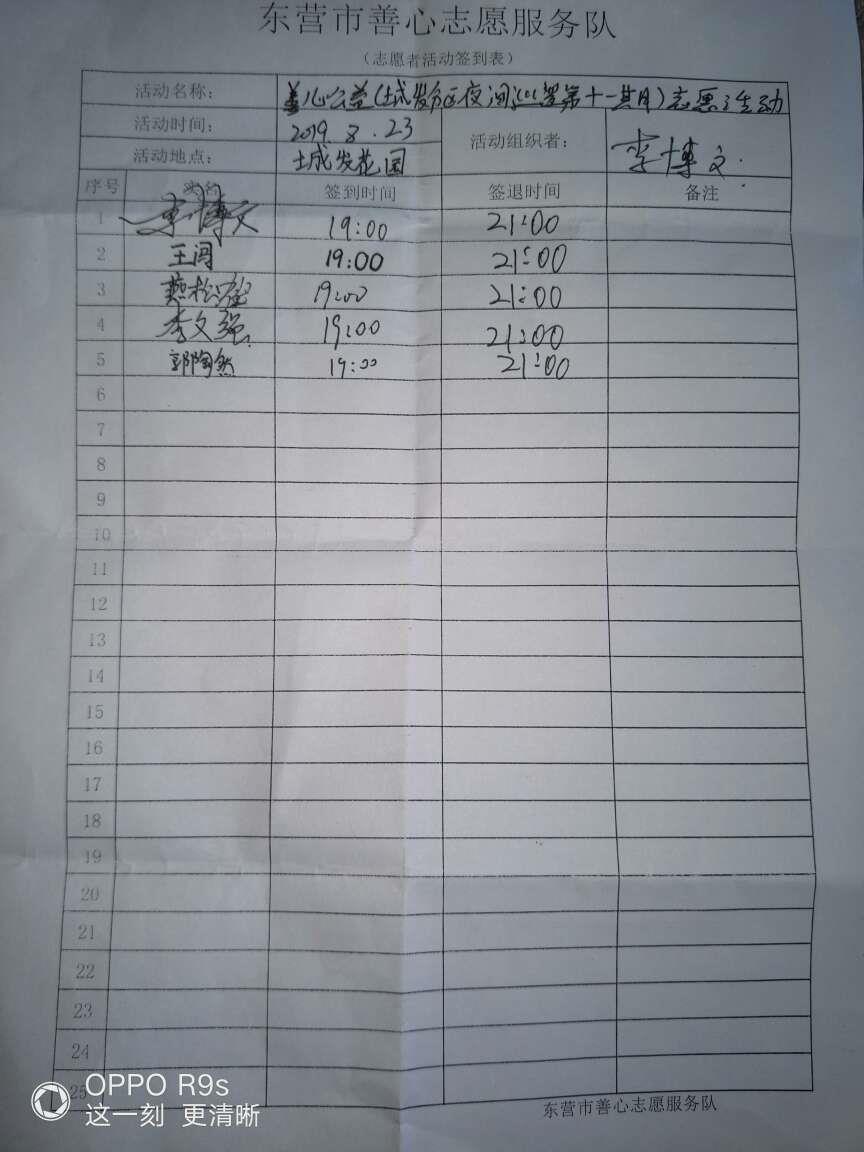 东营市善心志愿服务队
（志愿者活动签到表）
活动名称： 善心公益(城发分区夜间巡逻第十一期)志愿活动
活动时间： 2019.8.23 活动组织者： 李博文.
活动地点： 城发花园
序号 姓名 签到时间 签退时间 备注
1 李博文 19:00 21:00
2 王闯 19:00 21:00
3 19:00 21:00
4 李文强 19:00 21:00
5 郭陶然 19:00 21:00
6
7
8
9
10
11
12
13
14
15
16
17
18
19
20
21
22
23
24
25
东营市善心志愿服务队
OPPO R9s
这一刻 更清晰